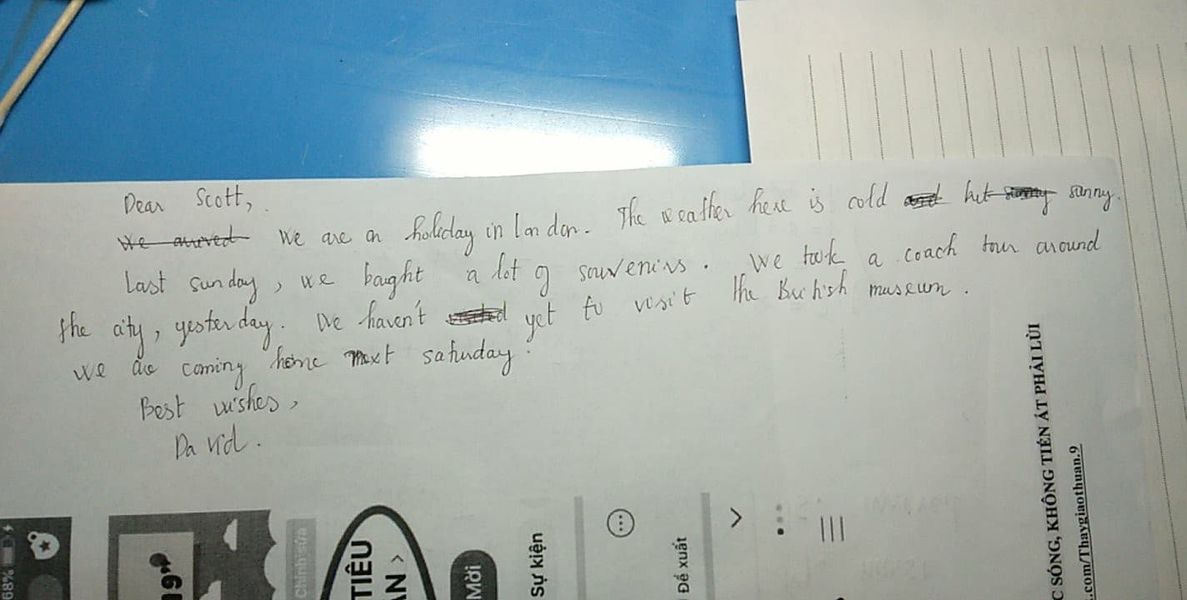 Dear Scott,
We arrived We are on holiday in London. The weather here is cold but sunny.
Last sunday, we baught a lot of souvenirs. We took a coach tour around
the city, yesterday. We haven't yet to visit the British museum.
We are coming home next saturday.
Best wishes,
David.
68%
19
Chỉnh sửa
TIÊU
ÁN >
Mời
Sự kiện
Đề xuất
C SÓNG, KHÔNG TIẾN ÁT PHẢI LÙI
.com/Thaygiaothuan.9